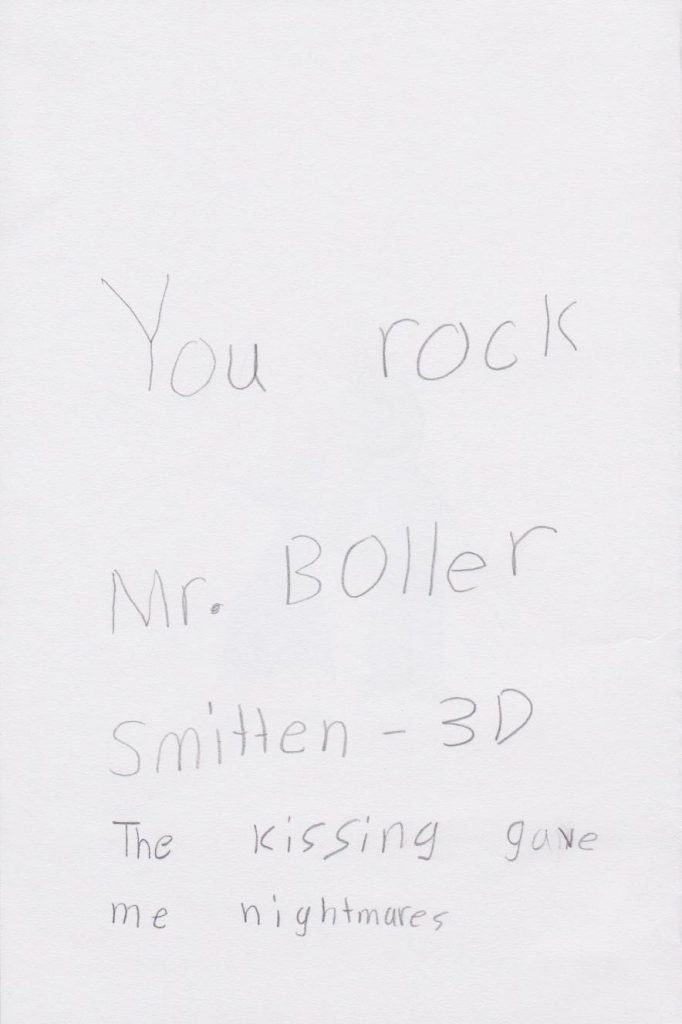 You rock
Mr. Boller
Smitten - 3D
The kissing gave
me nightmares